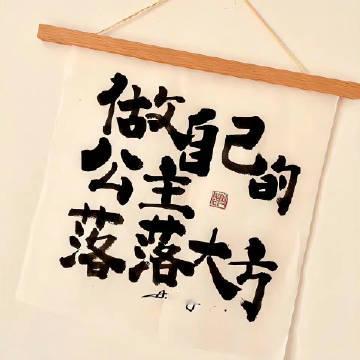 做自己的
公主
落落大方